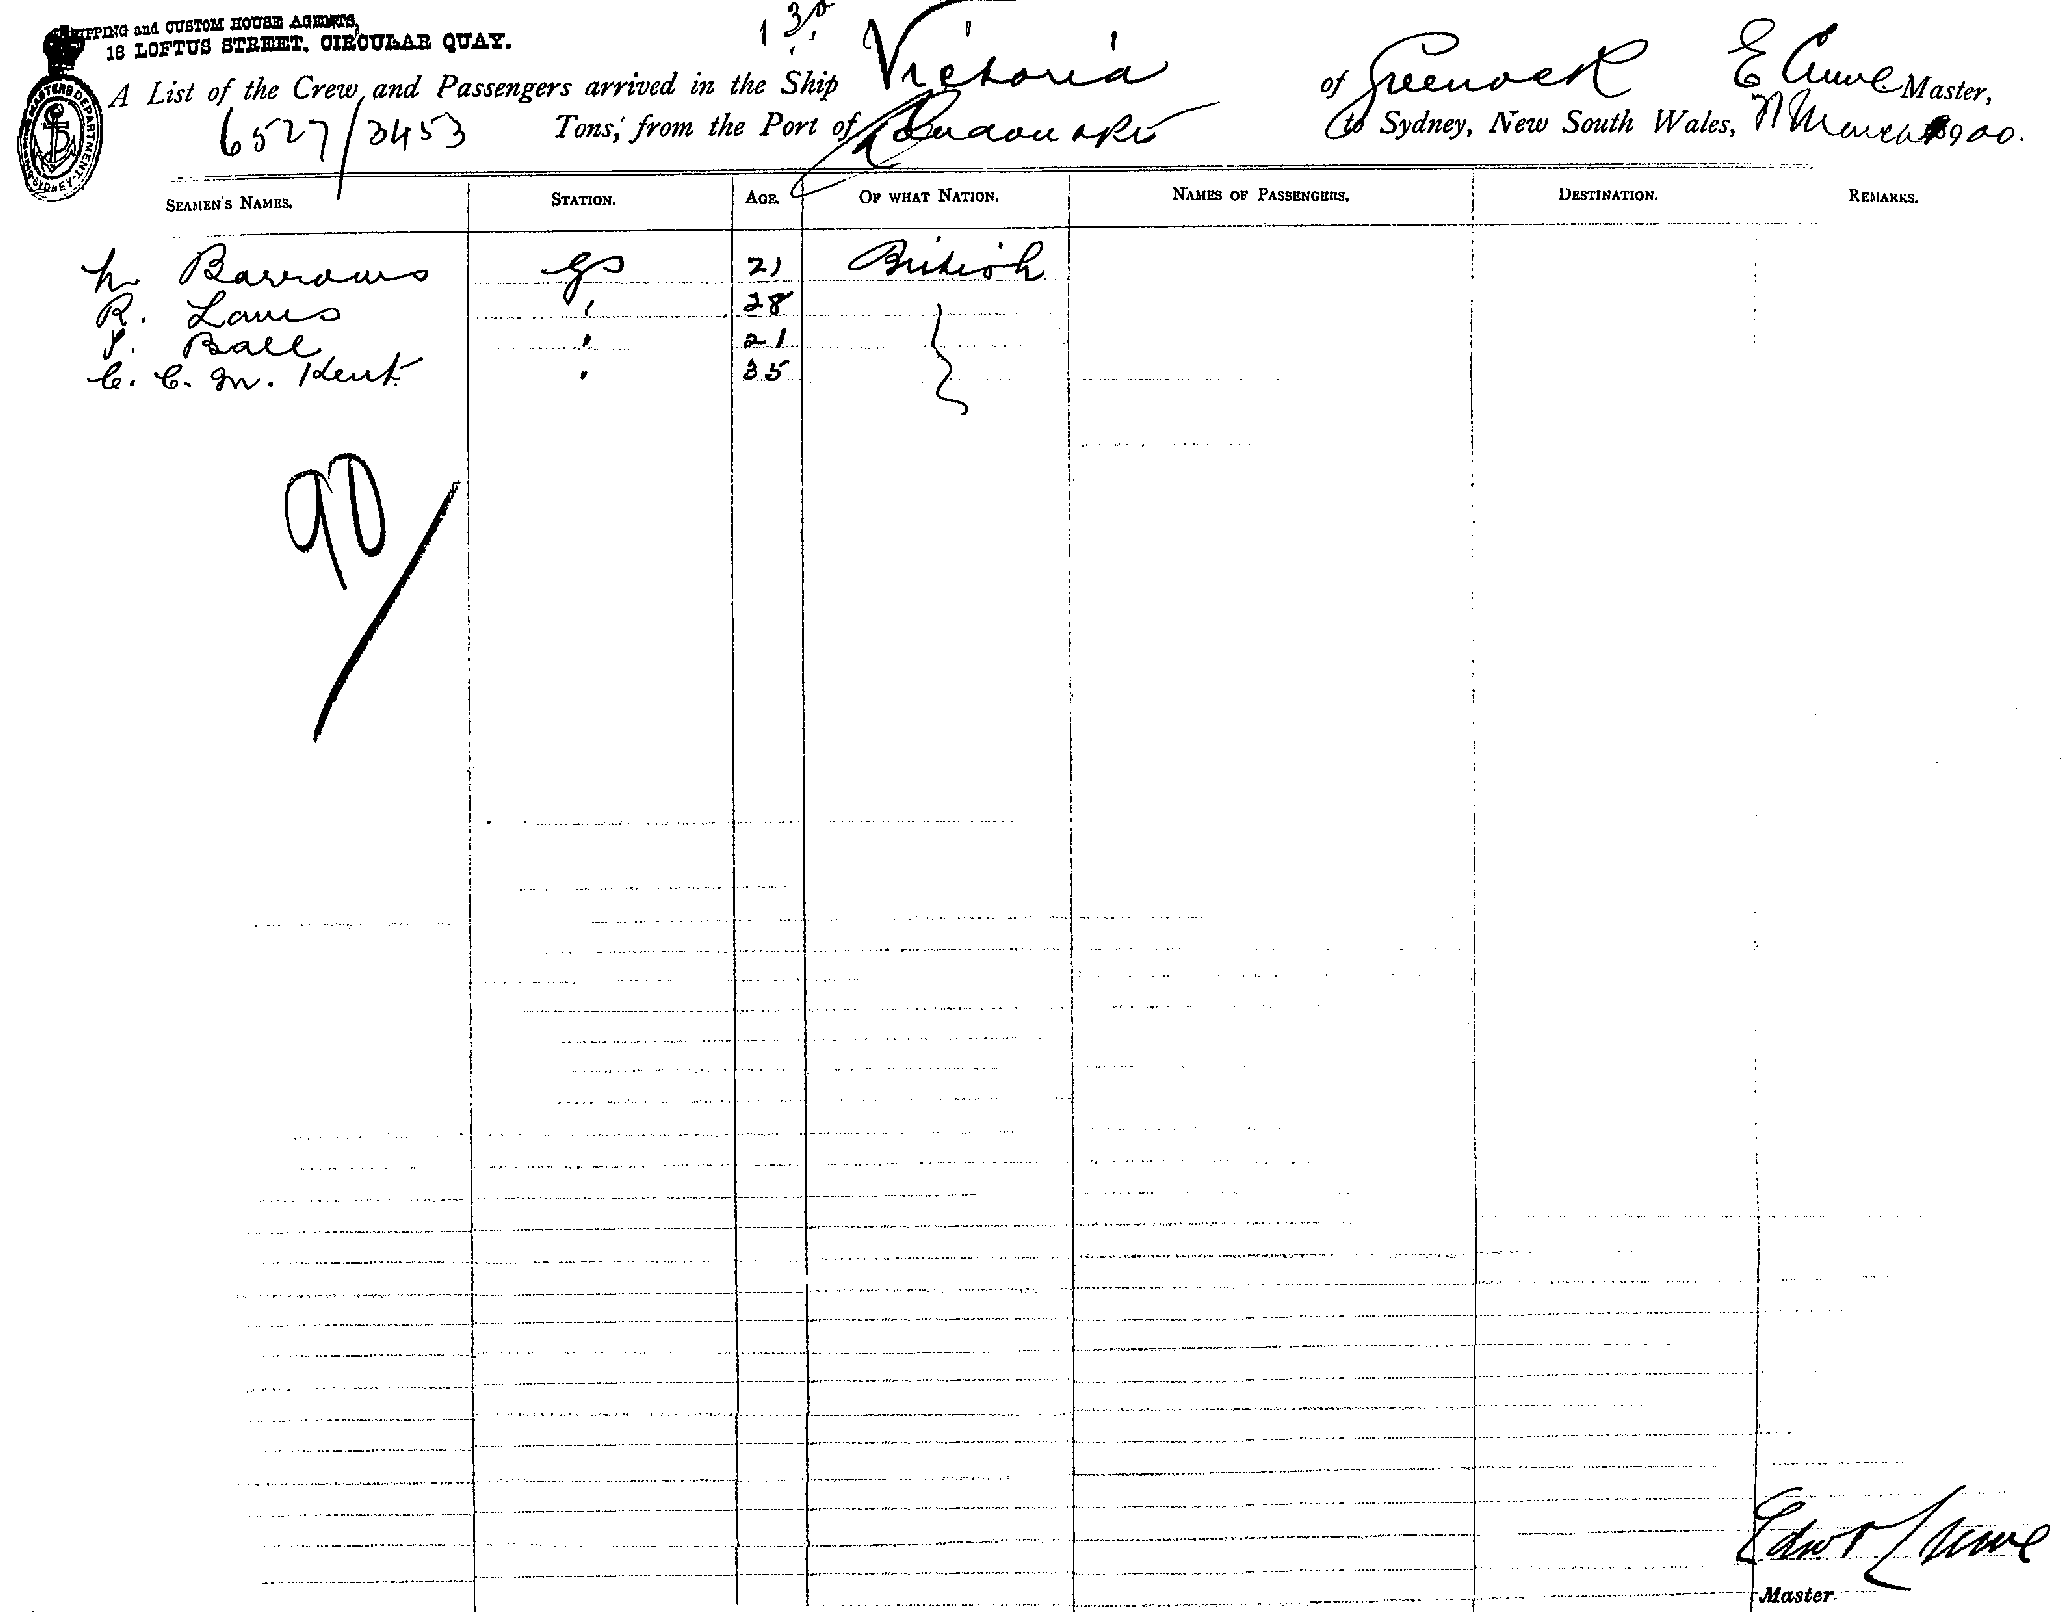 SHIPPING and CUSTOM HOUSE AGENTS,
18 LOFTUS STREET, CIRCULAR QUAY.
A List of the Crew and Passengers arrived in the Ship Victoria of Greenock E Crewe Master,
6527/3453 Tons, from the Port of London &c to Sydney, New South Wales, March 1900.
SEAMEN'S NAMES. STATION. AGE. OF WHAT NATION. NAMES OF PASSENGERS. DESTINATION. REMARKS.
Barrows gs 21 British
R. Laws " 28
Ball " 21
C. C. M. Kent " 35
90/
Edwd Crewe
Master